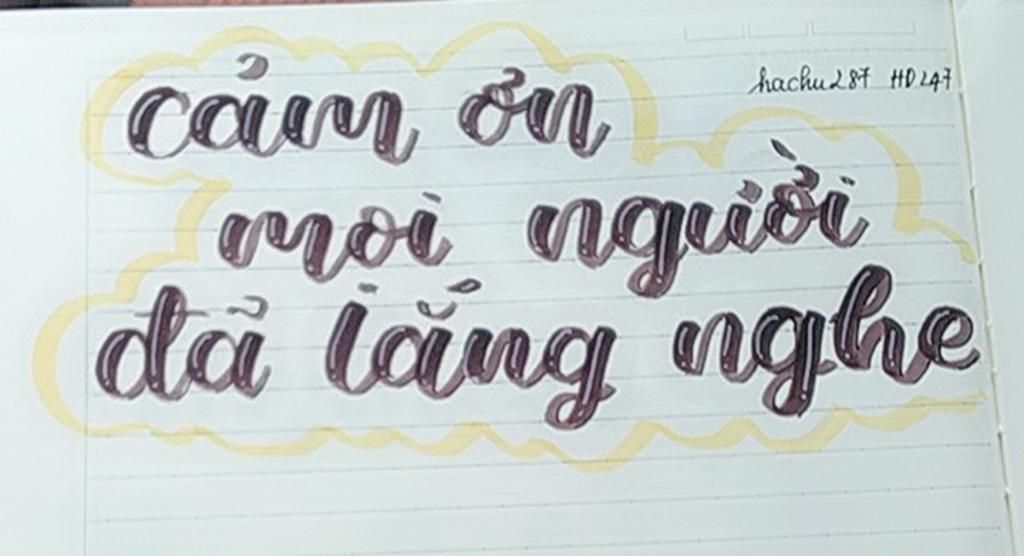 hachu287 HD247
cảm ơn
mọi người
đã lắng nghe